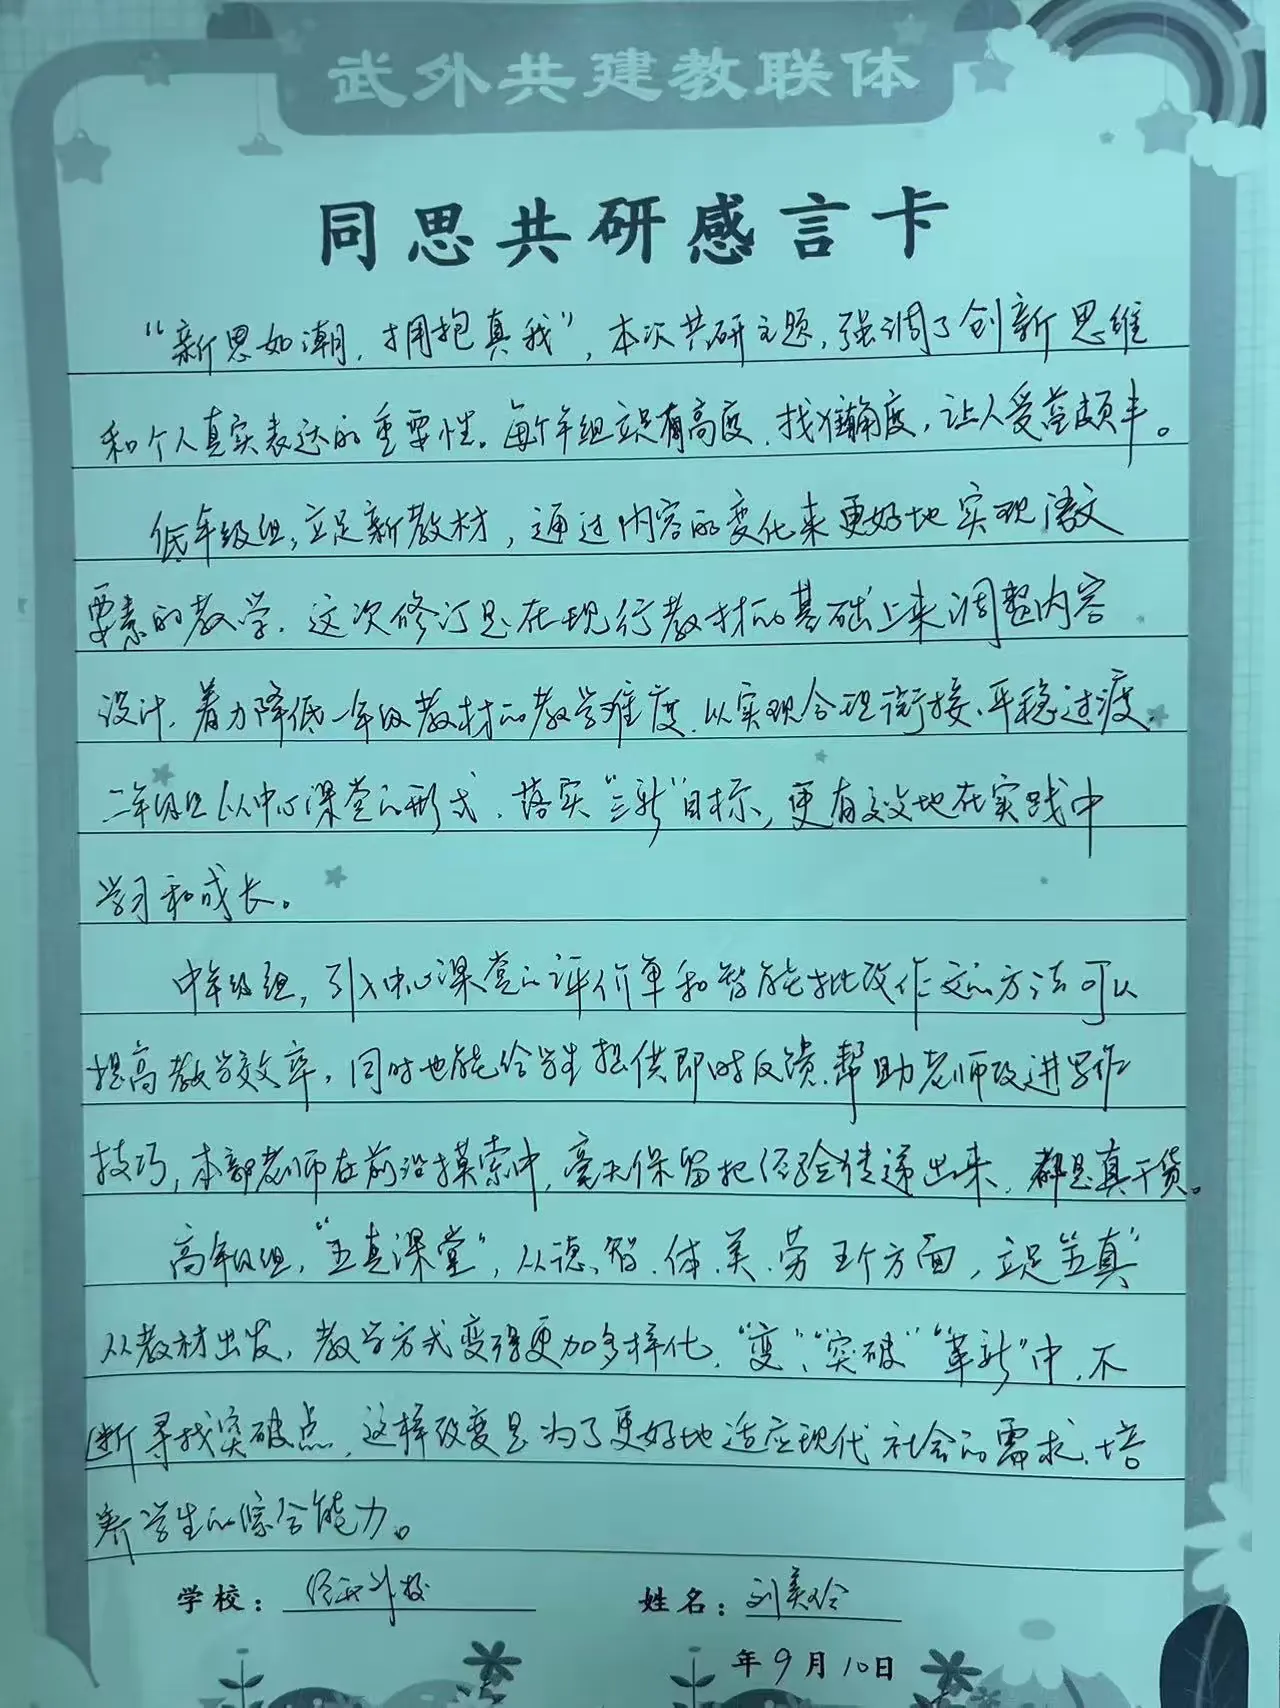 武外共建教联体
同思共研感言卡
“新思如潮，拥抱真我”，本次共研主题，强调了创新思维
和个人真实表达的重要性。每个年组立足有高度，找准角度，让人受益颇丰。
低年级组，立足新教材，通过内容的变化来更好地实现语文
要素的教学，这次修订是在现行教材的基础上来调整内容
设计，着力降低一年级教材的教学难度，以实现合理衔接、平稳过渡，
二年级以中心课堂的形式，落实“三新”目标，更有效地在实践中
学习和成长。
中年级组，引入中心课堂的评价单和智能批改作文的方法可以
提高教学效率，同时也能给学生提供即时反馈，帮助老师改进写作
技巧，本部老师在前沿摸索中，毫无保留把经验传递出来，都是真干货。
高年级组，“五真课堂”，从德、智、体、美、劳五个方面，立足“五真”
从教材出发，教学方式变得更加多样化，“变”、“突破”“革新”中，不
断寻找突破点，这样改变是为了更好地适应现代社会的需求，培
养学生的综合能力。
学校： 分校 姓名：刘美玲
年9月10日